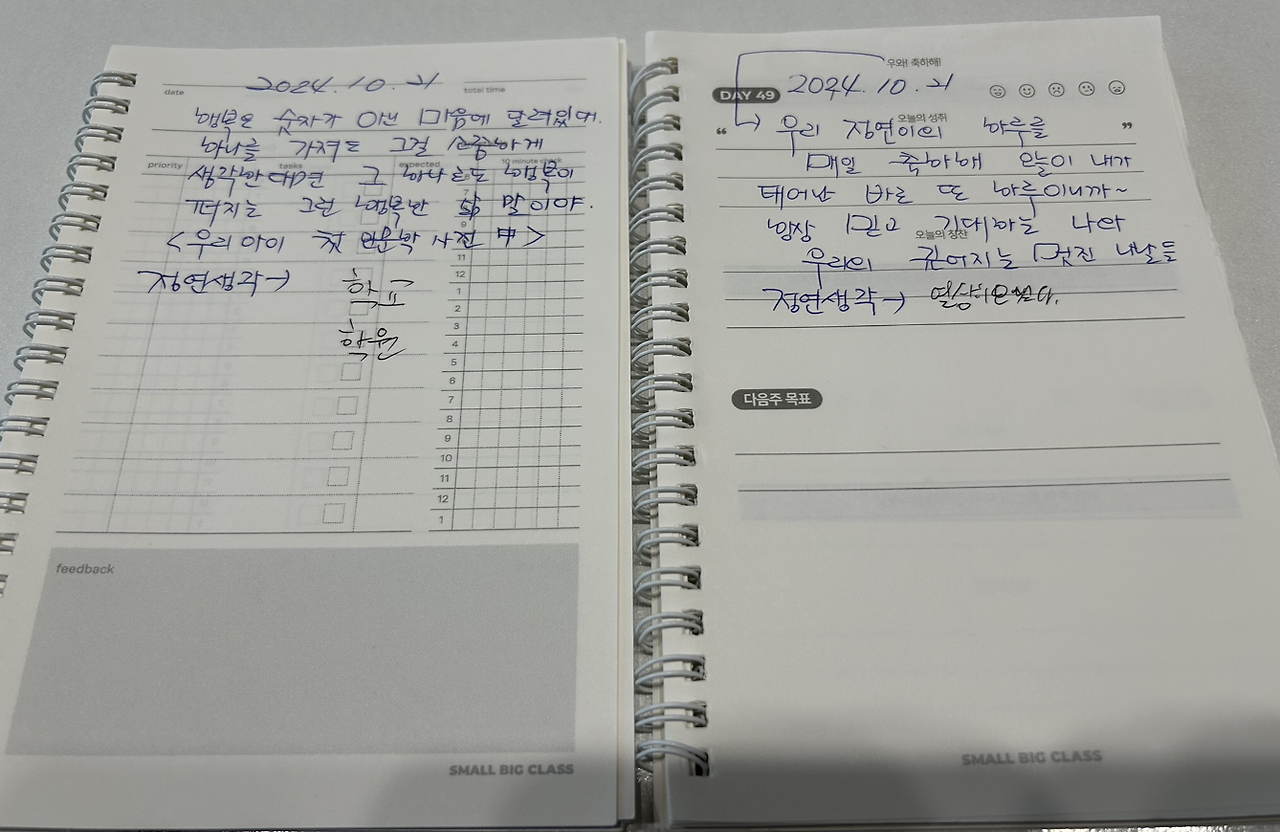 date 2024.10.21 total time
행복은 숫자가 아닌 마음에 달려있대.
하나를 가져도 그걸 소중하게
priority tasks expected 10 minute check
생각한다면 그 하나로도 행복이
커지는 그런 행복한 삶 말이야.
<우리아이 첫 인문학 사전 中>
정연생각→ 학교
학원
11
12
1
2
3
4
5
6
7
8
9
10
11
12
1
feedback
SMALL BIG CLASS
우와! 축하해!
DAY 49 2024.10.21
오늘의 성취
“ → 우리 정연이의 하루를 ”
매일 축하해 오늘이 내가
태어난 바로 또 하루이니까~
항상 믿고 기대하는 나와
오늘의 칭찬
우리의 멋진 내날들
정연생각→
다음주 목표
SMALL BIG CLASS